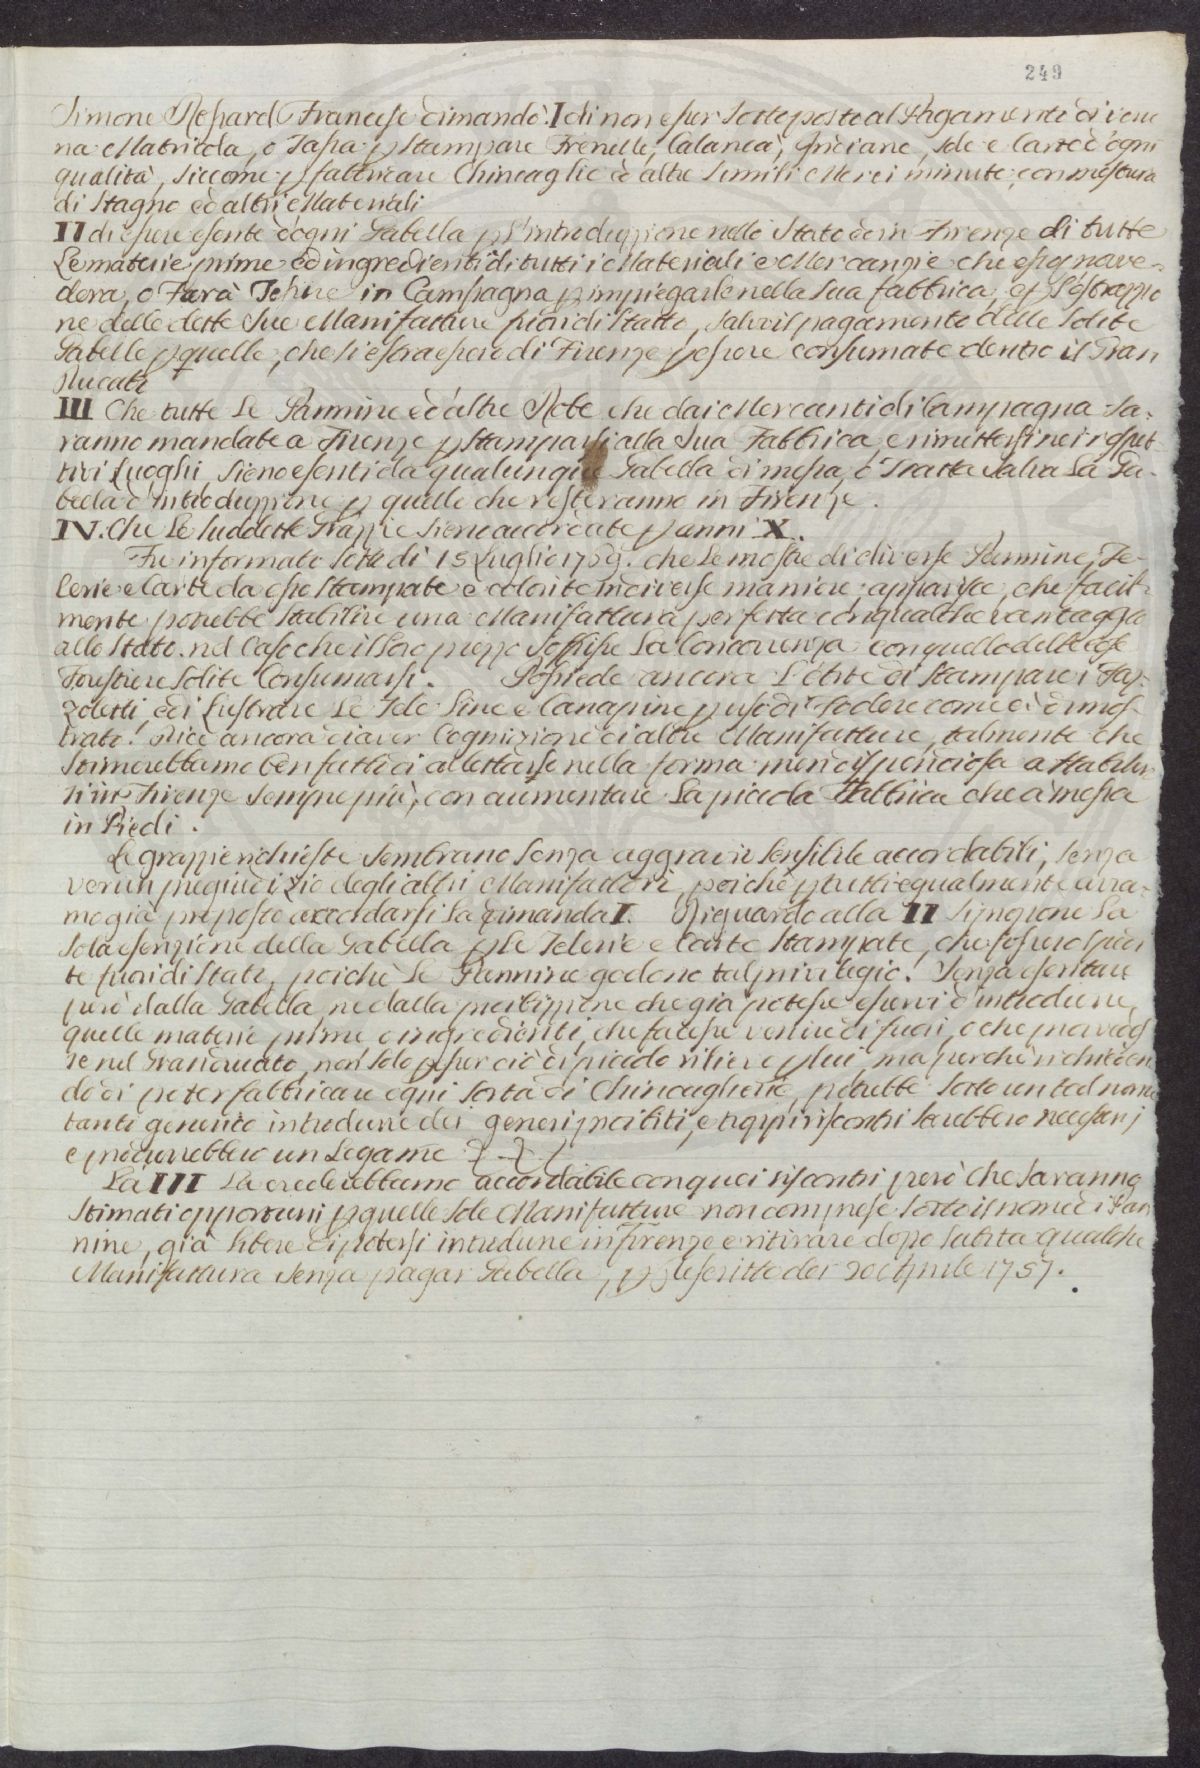 249
Simone Repard Francese dimandò. I di non esser sottoposto al Pagamento di veru
na Matricola, o Tassa p Stampare Frenelle, Calancà, Indiane, Tele e Carte d'ogni
qualità, siccome p fabbricare Chincaglie ed altre simili Merci minute, con mestura
di Stagno ed altri Materiali
II di essere esente d'ogni Gabella p l'introduzzione nello Stato ed in Firenze di tutte
Le materie prime ed ingredienti di tutti i Materiali e Mercanzie che esso prove-
derà, o Farà Tessere in Campagna p impiegarle nella sua fabbrica, e p l'estrazzio
ne delle dette sue Manifatture fuori di Stato, salvo il pagamento delle solite
Gabelle p quelle, che si estraessero di Firenze p essere consumate dentro il Gran
Ducato
III Che tutte Le Pannine ed altre Robe che dai Mercanti di Campagna sa-
ranno mandate a Firenze p stamparsi alla sua Fabbrica, e rimettersi nei rispet-
tivi Luoghi, sieno esenti da qualunque Gabella di messa, o Tratta salva La Ga-
bella d'introduzzione p quelle che resteranno in Firenze.
IV. Che Le suddette Grazzie sieno accordate p anni X.
Fu informato sotto di 15 Luglio 1759. che Le mostre di diverse Pannine, Te-
lerie e Carte da esso stampate e colorite in diverse maniere apparisce, che facil-
mente potrebbe stabilire una Manifattura perfetta con qualche vantaggio
allo Stato. nel Caso che il loro prezzo soffrisse La Concorrenza con quello delle robe
Forestiere solite Consumarsi. Possiede ancora L'Arte di stampare i Faz-
zoletti, e di Lustrare Le Tele Line e Canapine p uso di Fodere come ci à dimos-
trato. Dice ancora di aver Cognizione di altre Manifatture, talmente che
stimerebbamo ben fatto di allettarlo nella forma meno dispendiosa a stabilir-
si in Firenze sempre più, con aumentare La piccola Fabbrica che à messa
in Piedi.
Le grazzie richieste sembrano senza aggravio sensibile accordabili, senza
verun pregiudizio degli altri Manifattori, poichè p tutti equalmente avra-
mo già proposto accordarsi La dimanda I. Riguardo alla II si ristringe La
sola esenzione della Gabella p Le Telerie e Carte stampate, che fossero spedi
te fuori di Stato, poichè Le Pannine godono tal privilegio. Senza esentare
però dalla Gabella, ne dalla proibizzione che già potesse esservi d'introdurre
quelle materie prime o ingredienti, che facesse venire di fuori, o che provedes
se nel Granducato, non solo p esser ciò di piccolo rilievo p lui, ma perchè richieden
do di poter fabbricare ogni sorta di Chincaglierie, potrebbe sotto un tal nome
tanto generico introdurre dei generi proibiti, e troppi riscontri sarebbero necessarj
e produrrebbero un Legame
La III La crederebbamo accordabile con quei riscontri però che saranno
stimati opportuni p quelle sole Manifatture non comprese sotto il nome di Pan
nine, già libere di potersi introdurre in Firenze e ritirare dopo subita qualche
Manifattura senza pagar Gabella, p Rescritto dei 20 Aprile 1757.